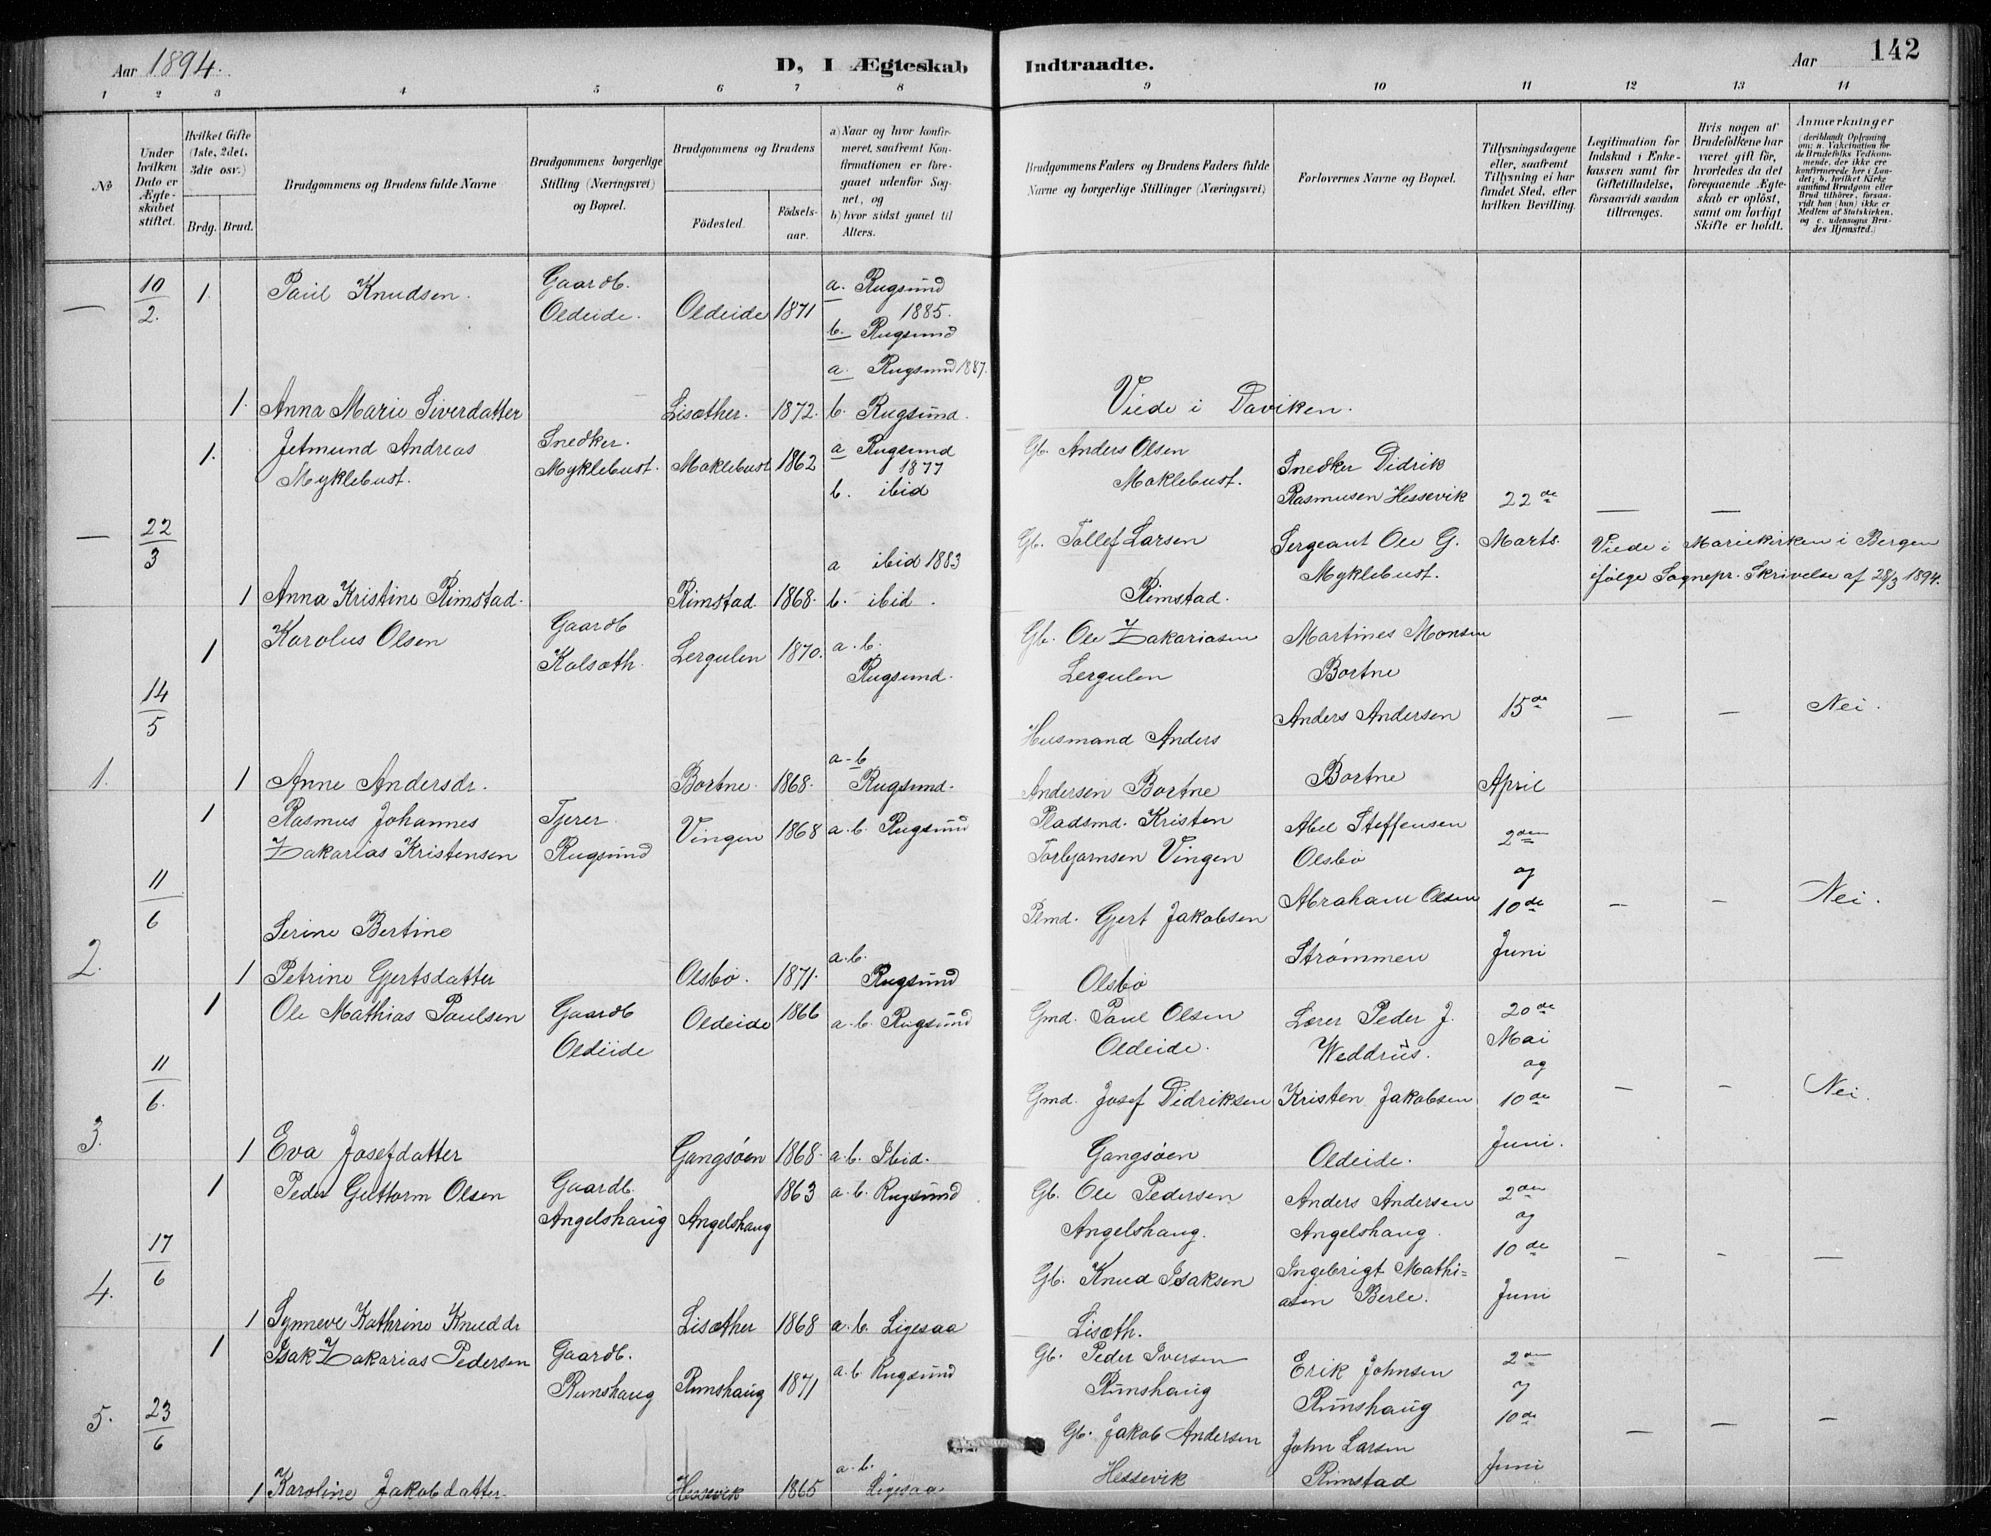 Aar 1894.
D, I Ægteskab
Indtraadte.
Aar
142
1 2 3 4 5 6 7 8 9 10 11 12 13 14
No
Under hvilken Dato er Ægteskabet stiftet.
Hvilket Gifte (1ste, 2det, 3die osv.)
Brdg. Brud.
Brudgommens og Brudens fulde Navne
Brudgommens borgerlige Stilling (Næringsvei) og Bopæl.
Brudgommens og Brudens
Födested.
Födselsaar.
a) Naar og hvor konfirmeret, saafremt Konfirmationen er foregaaet udenför Sognet, og
b) hvor sidst gaaet til Alters.
Brudgommens Faders og Brudens Faders fulde Navne og borgerlige Stillinger (Næringsvei)
Forlovernes Navne og Bopæl.
Tillysningsdagene eller, saafremt Tillysning ei har fundet Sted, efter hvilken Bevilling.
Legitimation for Indskud i Enkekassen samt for Giftetilladelse, forsaavidt saadan tiltrænges.
Hvis nogen af Brudefolkene har været gift för, hvorledes da det foregaaende Ægteskab er oplöst, samt om lovligt Skifte er holdt.
Anmærkninger
(deriblandt Oplysning om: a. Vakcination for de Brudefolks Vedkommende, der ikke ere konfirmerede her i Landet; b. hvilket Kirkesamfund Brudgom eller Brud tilhörer, forsaavidt han (hun) ikke er Medlem af Statskirken, og c. udensogns Brudes Hjemsted.)
— 10/2. 1. Paul Knudsen. Gaardb. Oldeide. Oldeide 1871 a. Rugsund 1885. b. Rugsund
1. Anna Marie Siverdatter Lisæther. 1872. a. Rugsund 1887. b. Rugsund.
Viede i Daviken.
— 22/3 1. Jetmund Andreas Myklebust. Snedker. Myklebust. Moklebust 1862 a Rugsund 1877 b. ibid
Gb. Anders Olsen Moklebust.
Snedker Didrik Rasmusen Hessevik
22de Marts. — —
1 Anna Kristine Rimstad. Rimstad 1868. a ibid 1883 b. ibid.
Gb. Tollef Larsen Rimstad.
Sergeant Ole G. Myklebust.
Viede i Mariekirken i Bergen
ifølge Sognepr. Skrivelse af 28/3 1894.
1. 14/5 1 Karolus Olsen Gaardb Kalsæth. Lergulen 1870. a. b. Rugsund.
Gb. Ole Zakariasen Lergulen
Martines Monsen Bortne
15de April — — Nei.
1 Anne Andersdr. Bortne. 1868. a-b Rugsund.
Husmand Anders Andersen Bortne
Anders Andersen Bortne
2. 11/6 1 Rasmus Johannes Zakarias Kristensen Tjener. Rugsund Vingen 1868 a. b. Rugsund
Pladsmd. Kristen Torbjørnsen Vingen
Abel Steffensen Olsbö
2den og 10de Juni — — Nei.
1 Serine Bertine Petrine Gjertsdatter Olsbö. 1871. a. b. Rugsund
Plmd. Gjert Jakobsen Olsbö
Abraham Olsen Strømmen
3. 11/6. 1 Ole Mathias Paulsen Gaardb Oldeide Oldeide 1866 a. b. Rugsund
Gmd. Paul Olsen Oldeide.
Lærer Peder J. Weddrüs.
20de Mai og 10de Juni. — — Nei.
1 Eva Josefdatter Gangsøen 1868. a. b. Ibid.
Gmd. Josef Didriksen Gangsøen
Kristen Jakobsen Oldeide.
4. 17/6 1 Peder Guttorm Olsen Gaardb. Angelshaug Angelshaug 1863 a. b. Rugsund
Gb. Ole Pedersen Angelshaug.
Anders Andersen Angelshaug.
2den og 10de Juni — — —
1 Synneve Kathrine Knuddr Lisæther 1868 a. b. Ligesaa
Gb. Knud Isaksen Lisæth.
Ingebrigt Mathiasen Berle.
5. 23/6 1 Isak Zakarias Pedersen Gaardb. Rimshaug Rimshaug 1871 a. b. Rugsund
Gb. Peder Iversen Rimshaug
Erik Johnsen Rimshaug
2den 10de Juni — — —
1 Karoline Jakobdatter. Hessevik 1865 a. b. Ligesaa
Gb. Jakob Andersen Hessevik
John Larsen Rimstad